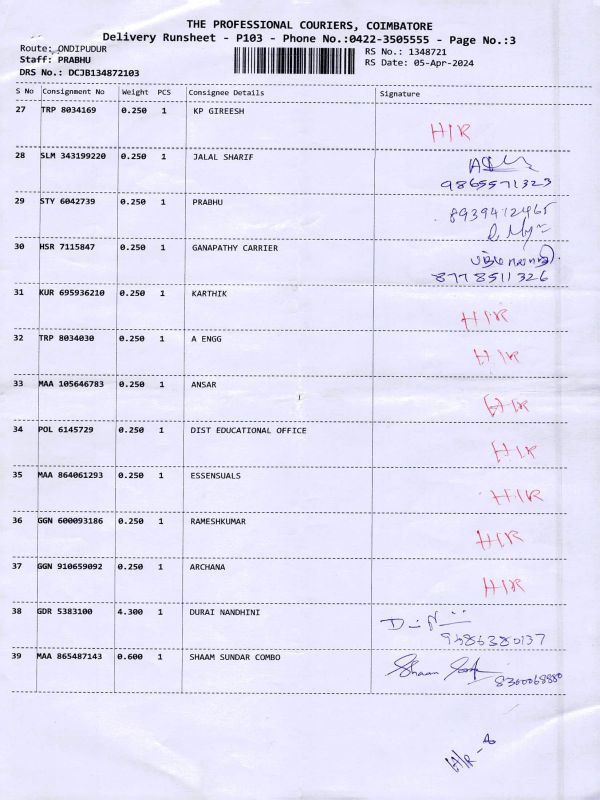 THE PROFESSIONAL COURIERS, COIMBATORE
Delivery Runsheet - P103 - Phone No.:0422-3505555 - Page No.:3
Route: ONDIPUDUR
RS No.: 1348721
Staff: PRABHU
RS Date: 05-Apr-2024
DRS No.: DCJB134872103
S No Consignment No Weight PCS Consignee Details Signature
27 TRP 8034169 0.250 1 KP GIREESH
H/R
28 SLM 343199220 0.250 1 JALAL SHARIF
9865571323
29 STY 6042739 0.250 1 PRABHU
8939412465
30 HSR 7115847 0.250 1 GANAPATHY CARRIER
8778511326
31 KUR 695936210 0.250 1 KARTHIK
H/R
32 TRP 8034030 0.250 1 A ENGG
H/R
33 MAA 105646783 0.250 1 ANSAR
H/R
34 POL 6145729 0.250 1 DIST EDUCATIONAL OFFICE
H/R
35 MAA 864061293 0.250 1 ESSENSUALS
H/R
36 GGN 600093186 0.250 1 RAMESHKUMAR
H/R
37 GGN 910659092 0.250 1 ARCHANA
H/R
38 GDR 5383100 4.300 1 DURAI NANDHINI
39 MAA 865487143 0.600 1 SHAAM SUNDAR COMBO
Shaam
H/R - 8